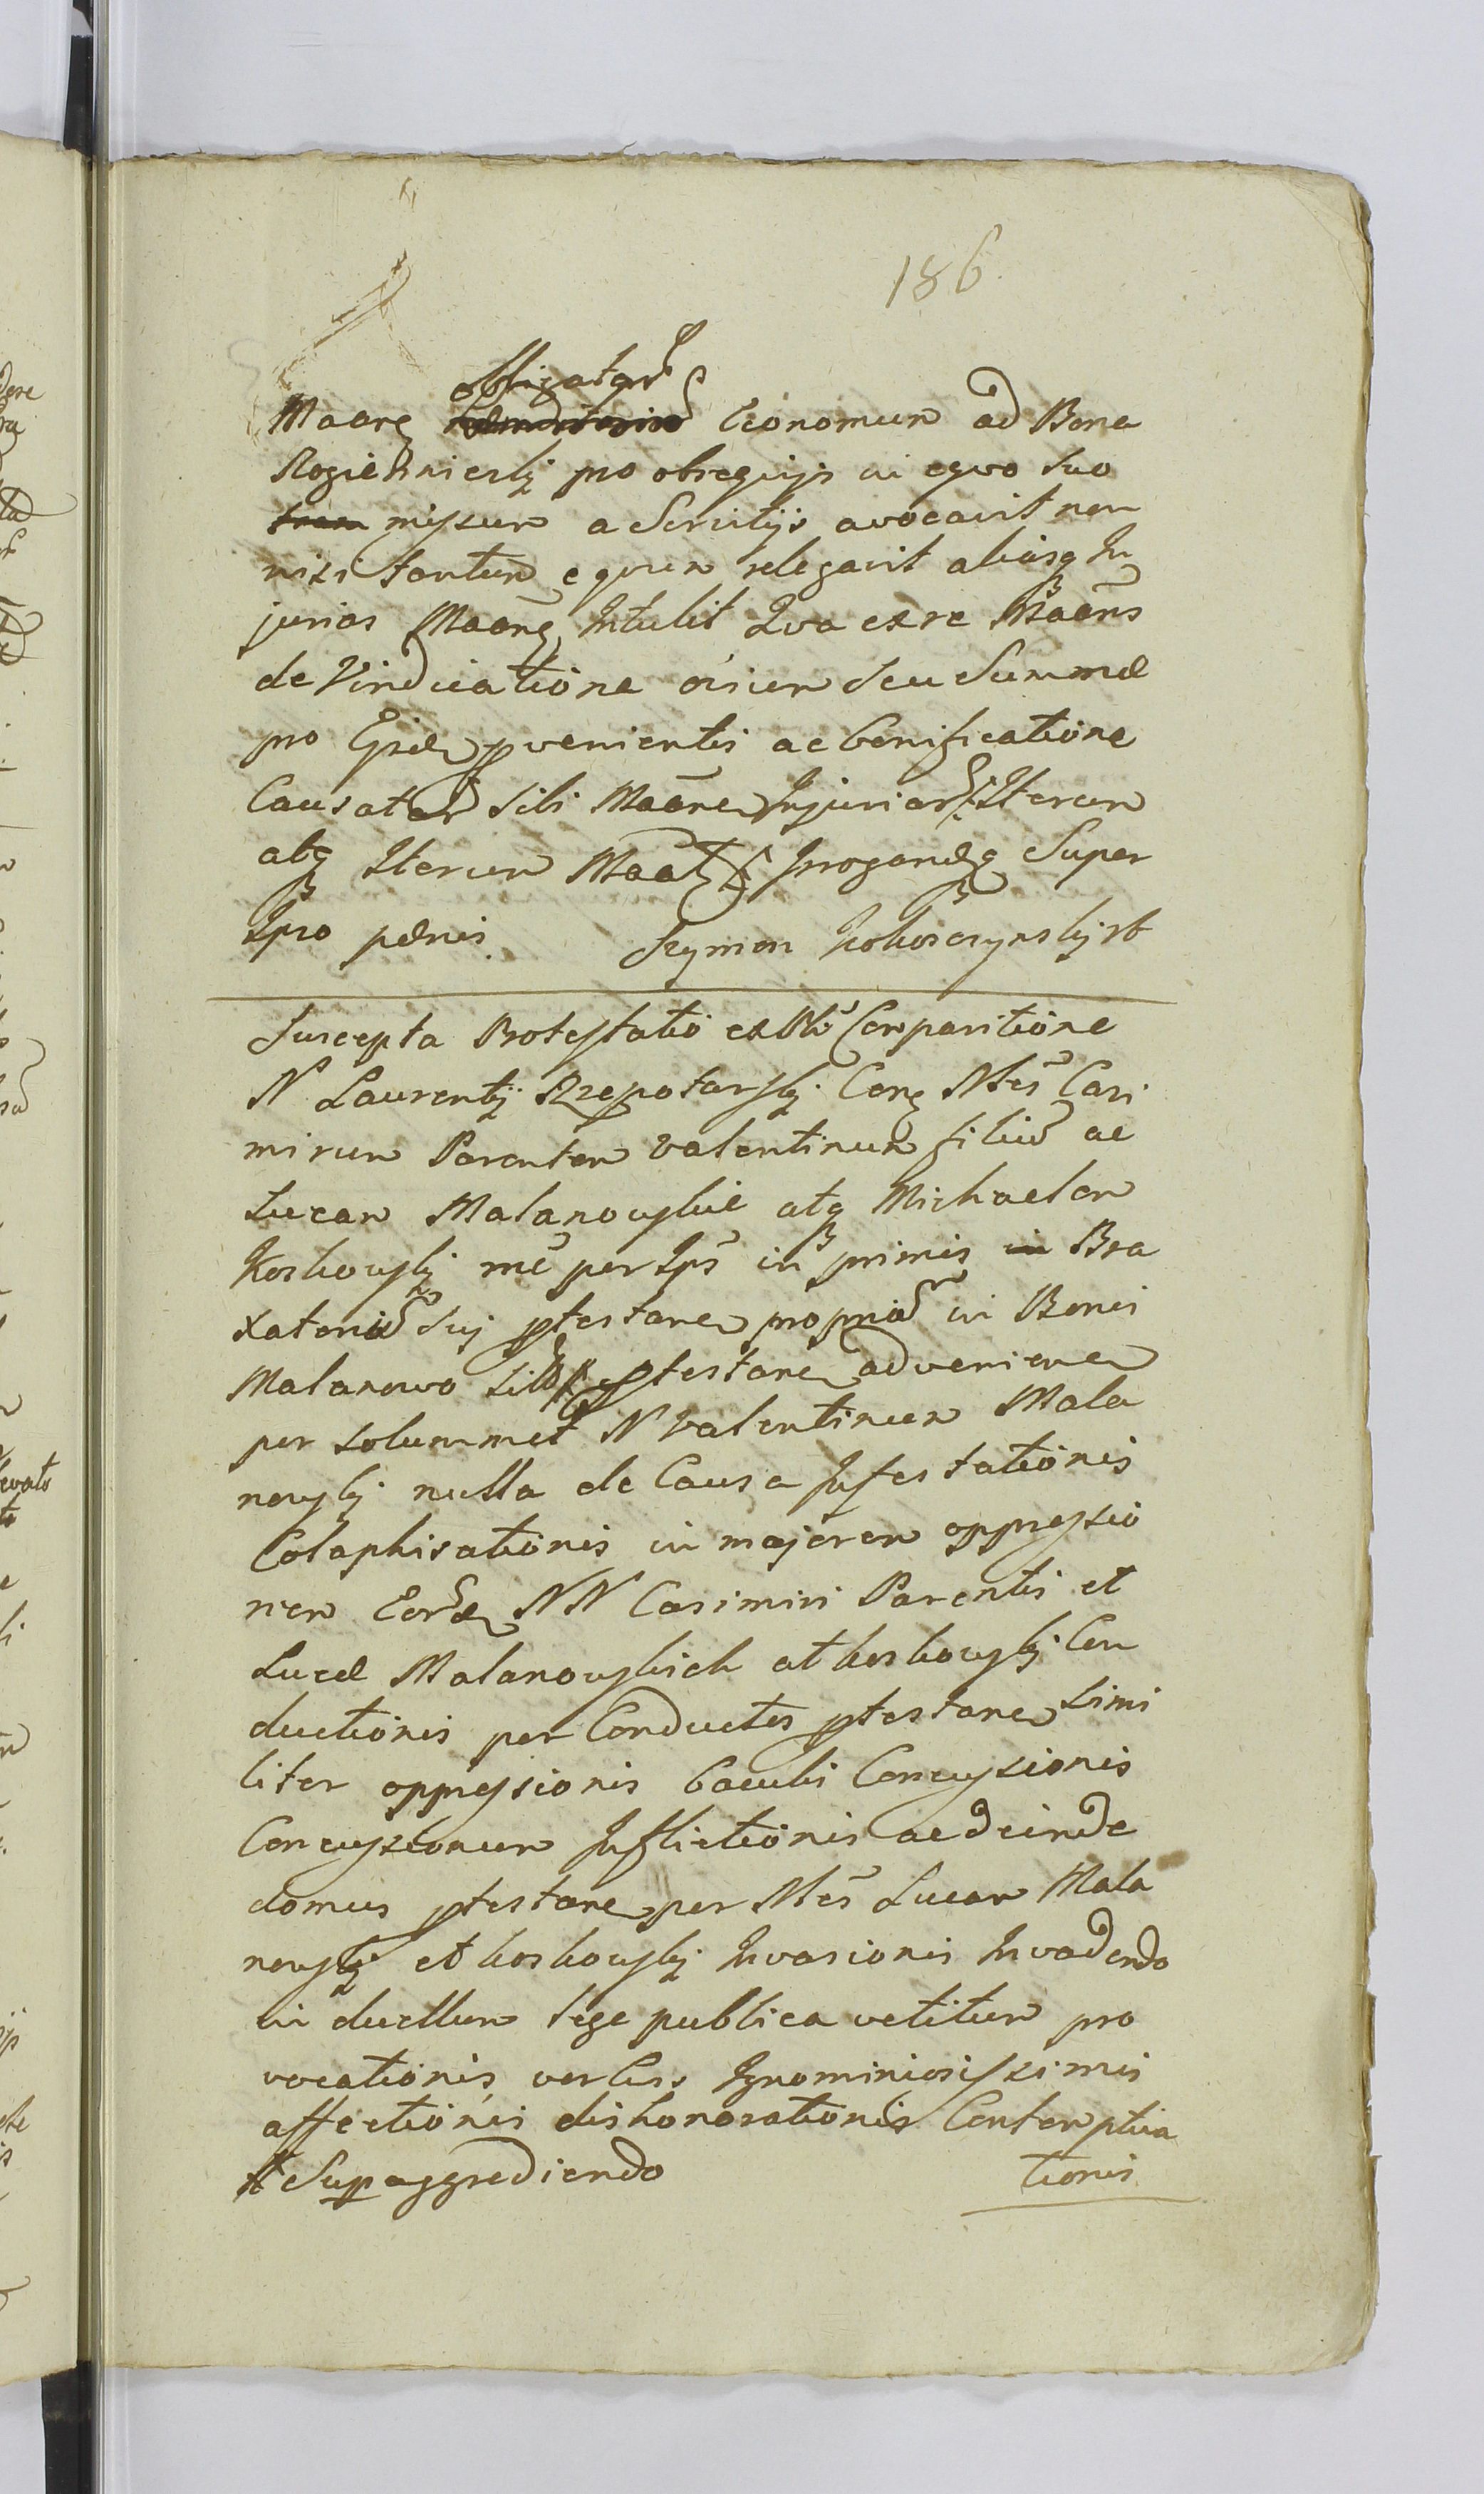 186.
obligatur
Maore Economum ad Bona
pro obsequijs in eqvo suo
missum a Servitijs avocavit non
nisi tantum equum relegavit aliasq In
jurias Maone Intulit Qva ex re Maons
de Vindicatione seu Summæ
pro provenientis ac Bonificatione
Causatar Sibi Maone Injuriar Iterum
atq Iterum Super
Ipso pænis. Szymon Kokoszynskj
Suscepta Protestatio ex Comparitione
N Laurentij Rzepotarskj Con Casi
mirum Parentem Valentinum filiū ac
Lucam Malanowskie atq Michaelem
Koskowskj per Ips in primis Bra
xatoria Suj ptestane propria in Bonis
Malanowo ptestane advenien
per solummet N Valentinum Mala
nowskj nulla de Causa Infestationis
Colaphisationis in majorem oppressio
nem NN Casimiri Parentis et
Lucæ Malanowskich et koskowskj Con
ductionis per Conductos ptestane simi
liter oppressionis baculi Concussionis
Concussionum Inflictionis ac deinde
domus ptestane per Lucam Mala
nowskj et koskowskj Invasionis Invadendo
in duellum lege publica vetitum pro
vocationis verbis Ignominiosissimis
affectionis dishonorationis Contemptua
Sup aggrediendo tionis